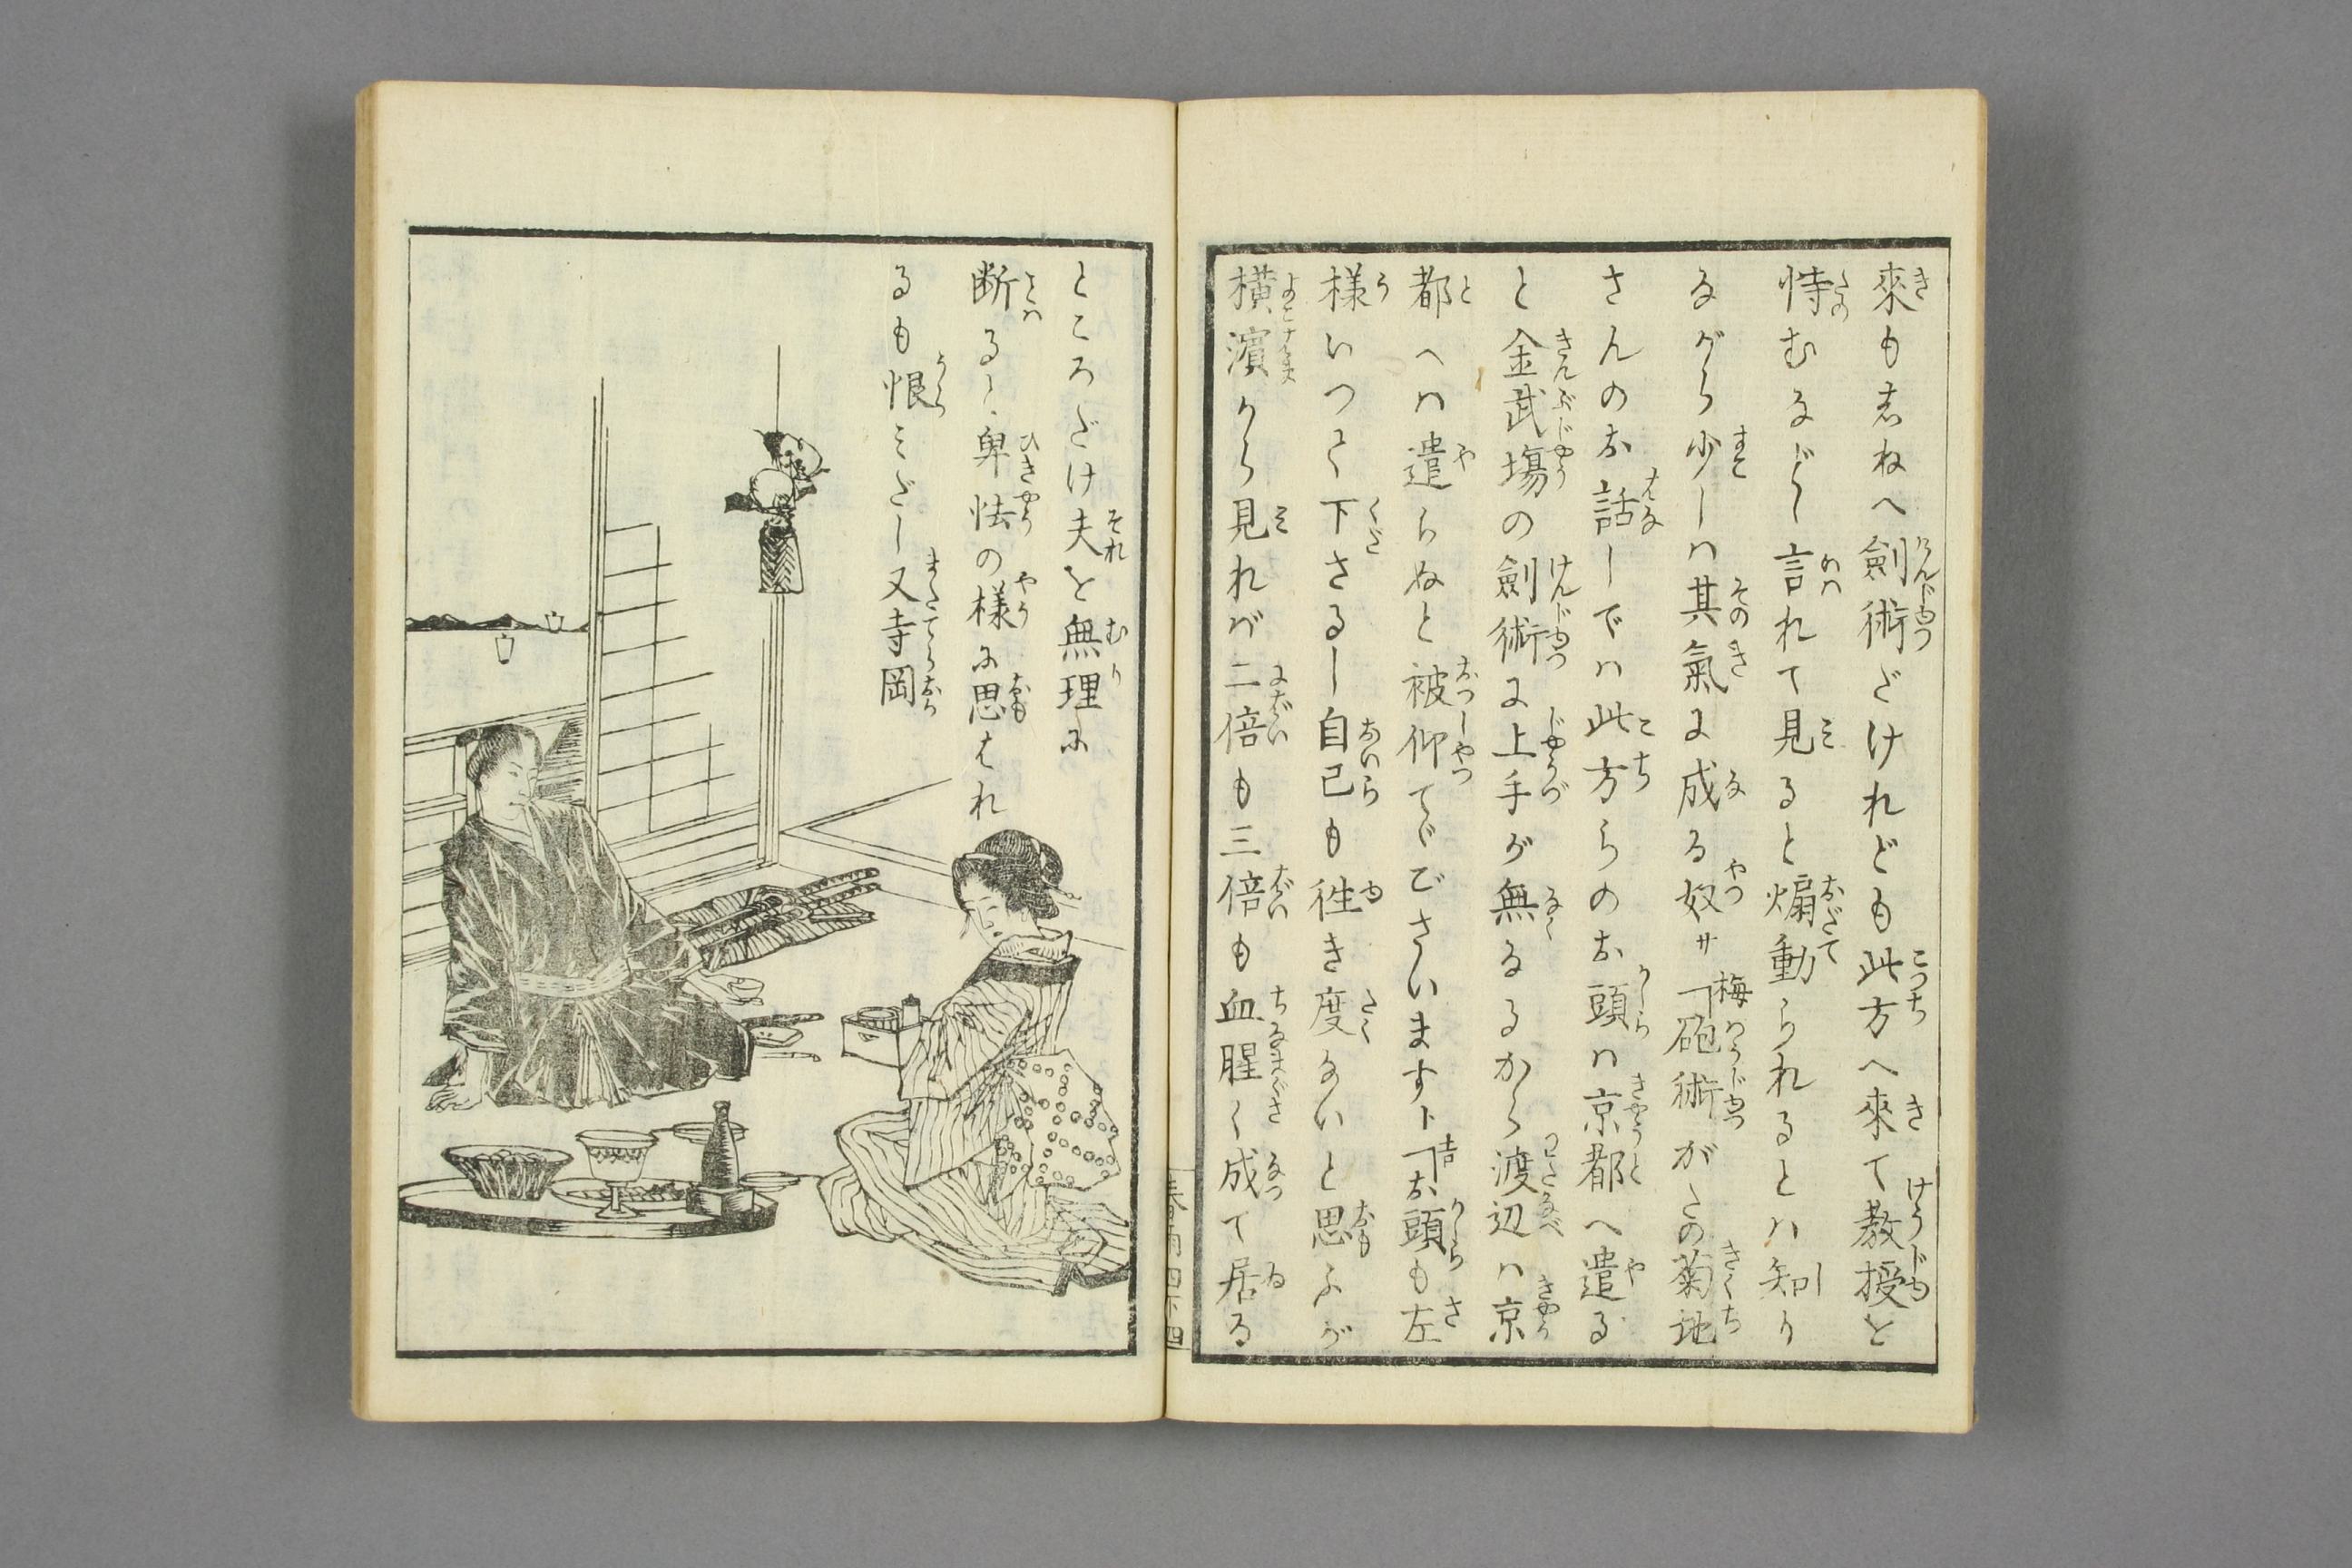 來も志ねへ劍術だけれども此方へ來て教授を
恃むなどゝ言れて見ると煽動られるとハ知り
ながら少しハ其氣に成る奴サ梅「砲術がたの菊地
さんのお話しでハ此方らのお頭ハ京都へ遣る
と金武塲の劍術に上手が無なるから渡辺ハ京
都へハ遣らぬと被仰てゞございますト吉「お頭も左
様いつて下さるし自己も徃き度ないと思ふが
橫濱から見れバ二倍も三倍も血腥く成て居る
ところだけ夫を無理に
断るハ卑怯の様に思はれ
るも恨みだし又寺岡